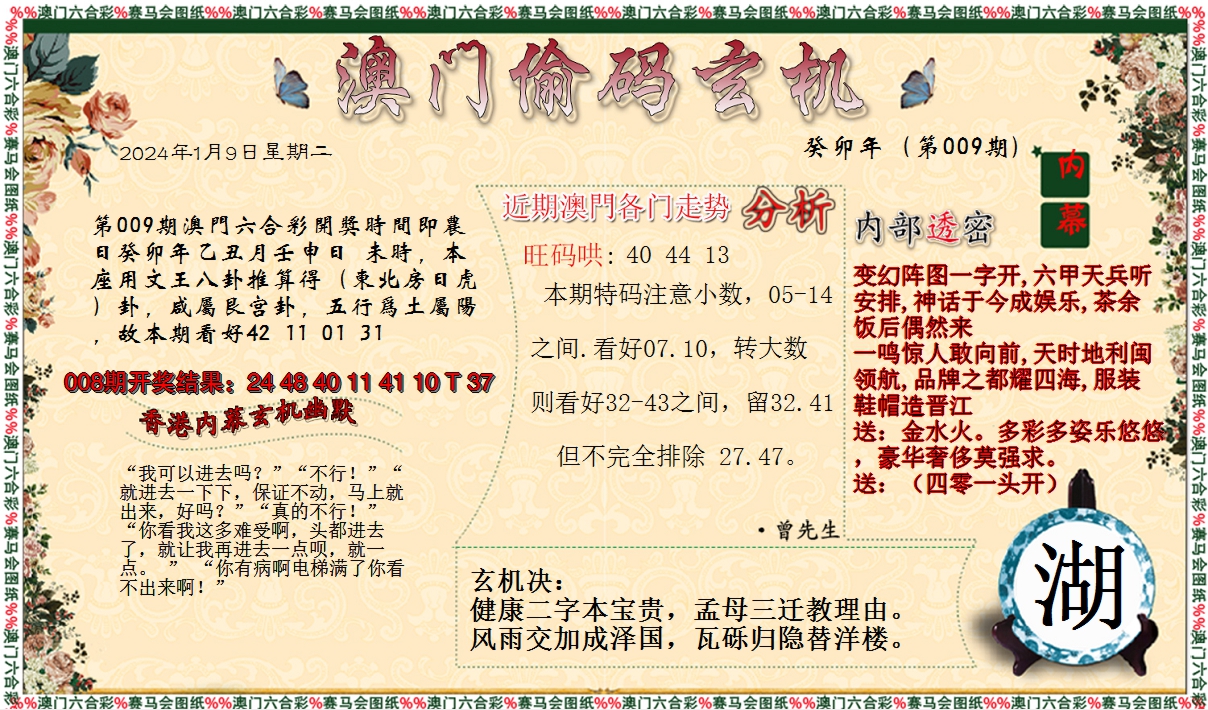 %%澳门六合彩%赛马会图纸%%澳门六合彩%赛马会图纸%%澳门六合彩%赛马会图纸%%澳门六合彩%赛马会图纸%%澳门六合彩%赛马会图纸%%澳门六合彩%赛马会图纸%%
澳门偷码玄机
2024年1月9日星期二
癸卯年（第009期）
内
幕
第009期澳門六合彩開獎時間即農
日癸卯年乙丑月壬申日 未時，本
座用文王八卦推算得（東北房日虎
）卦，咸屬艮宫卦，五行爲土屬陽
，故本期看好42 11 01 31
008期开奖结果：24 48 40 11 41 10 T 37
香港内幕玄机幽默
“我可以进去吗？”“不行！”“
就进去一下下，保证不动，马上就
出来，好吗？”“真的不行！”
“你看我这多难受啊，头都进去
了，就让我再进去一点呗，就一
点。 ” “你有病啊电梯满了你看
不出来啊！”
近期澳門各门走势 分析
旺码哄: 40 44 13
本期特码注意小数，05-14
之间.看好07.10，转大数
则看好32-43之间，留32.41
但不完全排除 27.47。
·曾先生
内部透密
变幻阵图一字开,六甲天兵听
安排,神话于今成娱乐,茶余
饭后偶然来
一鸣惊人敢向前,天时地利闽
领航,品牌之都耀四海,服装
鞋帽造晋江
送：金水火。多彩多姿乐悠悠
，豪华奢侈莫强求。
送：（四零一头开）
玄机决：
健康二字本宝贵，孟母三迁教理由。
风雨交加成泽国，瓦砾归隐替洋楼。
湖
%%澳门六合彩%赛马会图纸%%澳门六合彩%赛马会图纸%%澳门六合彩%赛马会图纸%%澳门六合彩%赛马会图纸%%澳门六合彩%赛马会图纸%%澳门六合彩%赛马会图纸%%